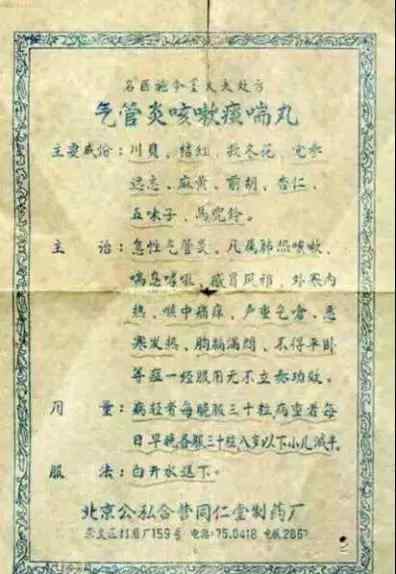 名医施今墨大夫处方
气管炎咳嗽痰喘丸
主要成份：川貝、桔红、款冬花、党参
远志、麻黄、前胡、杏仁、
五味子、馬兜鈴。
主　治：急性气管炎、凡属肺热咳嗽、
喘息哮喘、感冒风邪、外寒内
热、喉中痛痒、声重气啬、恶
寒发热、胸膈满闷、不得平卧
等症一经服用无不立奏功效。
用　量：病轻者每晚服三十粒,病重者每
日早晚各服三十粒,八岁以下小儿减半。
服　法：白开水送下。
北京公私合营同仁堂制药厂
崇文区打磨厂159号 电话:75.0418 电报2867